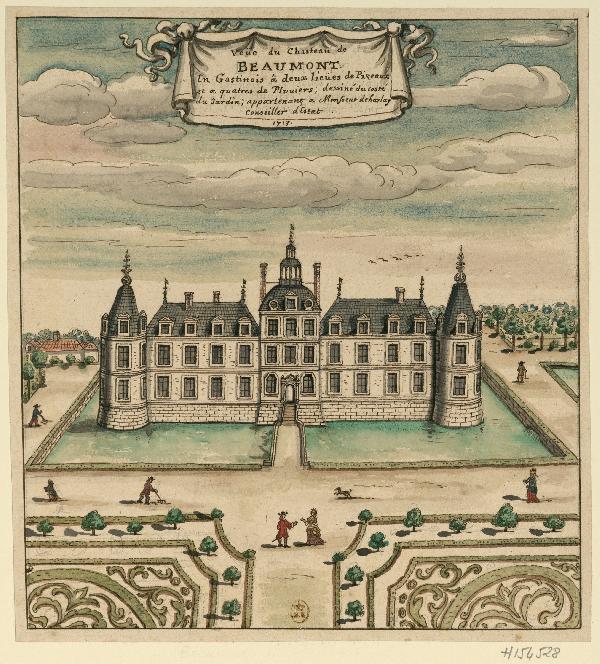 Veüe du Chasteau de
BEAUMONT
En Gastinois à deux lieües de Piseaux
et a quatres de Pluviers; dessiné du costé
du Jardin; appartenant a Monsieur de harlay
Conseiller d'Estat
1717.
H156528